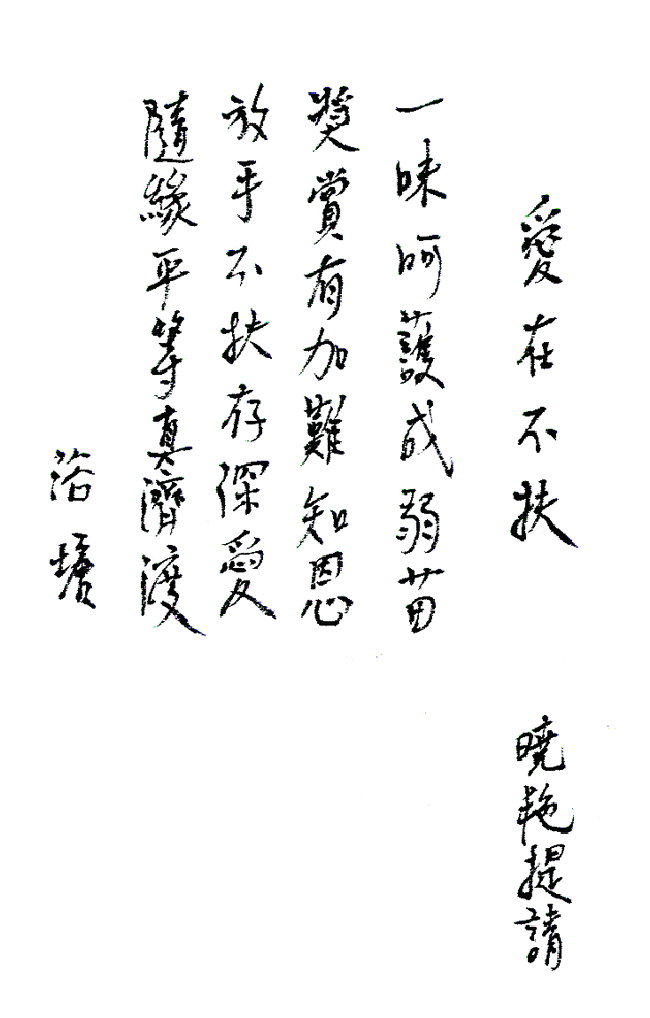 愛在不扶 曉艳提請
一味呵護成弱苗
獎賞有加難知恩
放手不扶存深愛
隨緣平等真濟渡